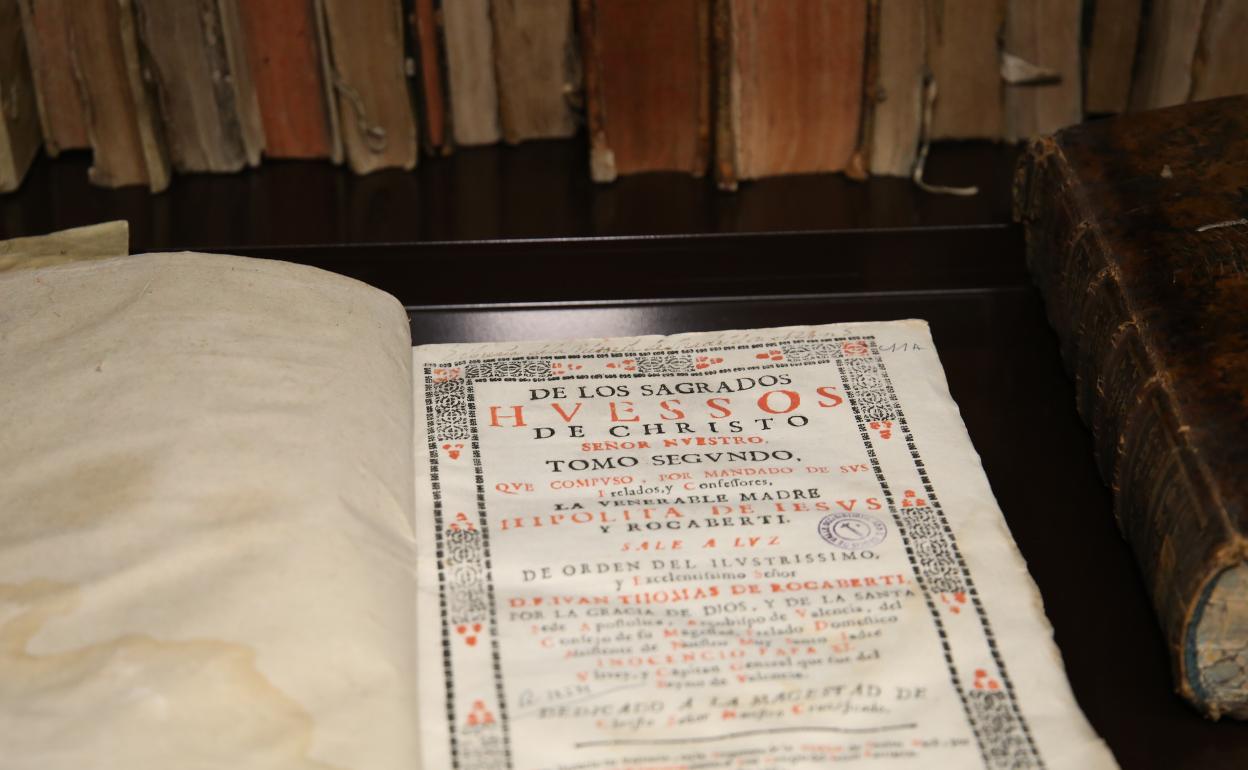 DE LOS SAGRADOS
HVESSOS
DE CHRISTO
SEÑOR NVESTRO,
TOMO SEGVNDO,
QVE COMPVSO, POR MANDADO DE SVS
Prelados, y Confessores,
LA VENERABLE MADRE
HIPOLITA DE IESVS
Y ROCABERTI.
SALE A LVZ
DE ORDEN DEL ILVSTRISSIMO,
y Excelentissimo Señor
D. F. IVAN THOMAS DE ROCABERTI,
POR LA GRACIA DE DIOS, Y DE LA SANTA
Sede Apostolica, Arçobispo de Valencia, del
Consejo de su Magestad, Prelado Domestico
Assistente de Nuestro Muy Santo Padre
INOCENCIO PAPA XI.
Virrey, y Capitan General que fue del
Reyno de Valencia.
DEDICADO A LA MAGESTAD DE
Christo Señor Nuestro Crucificado.